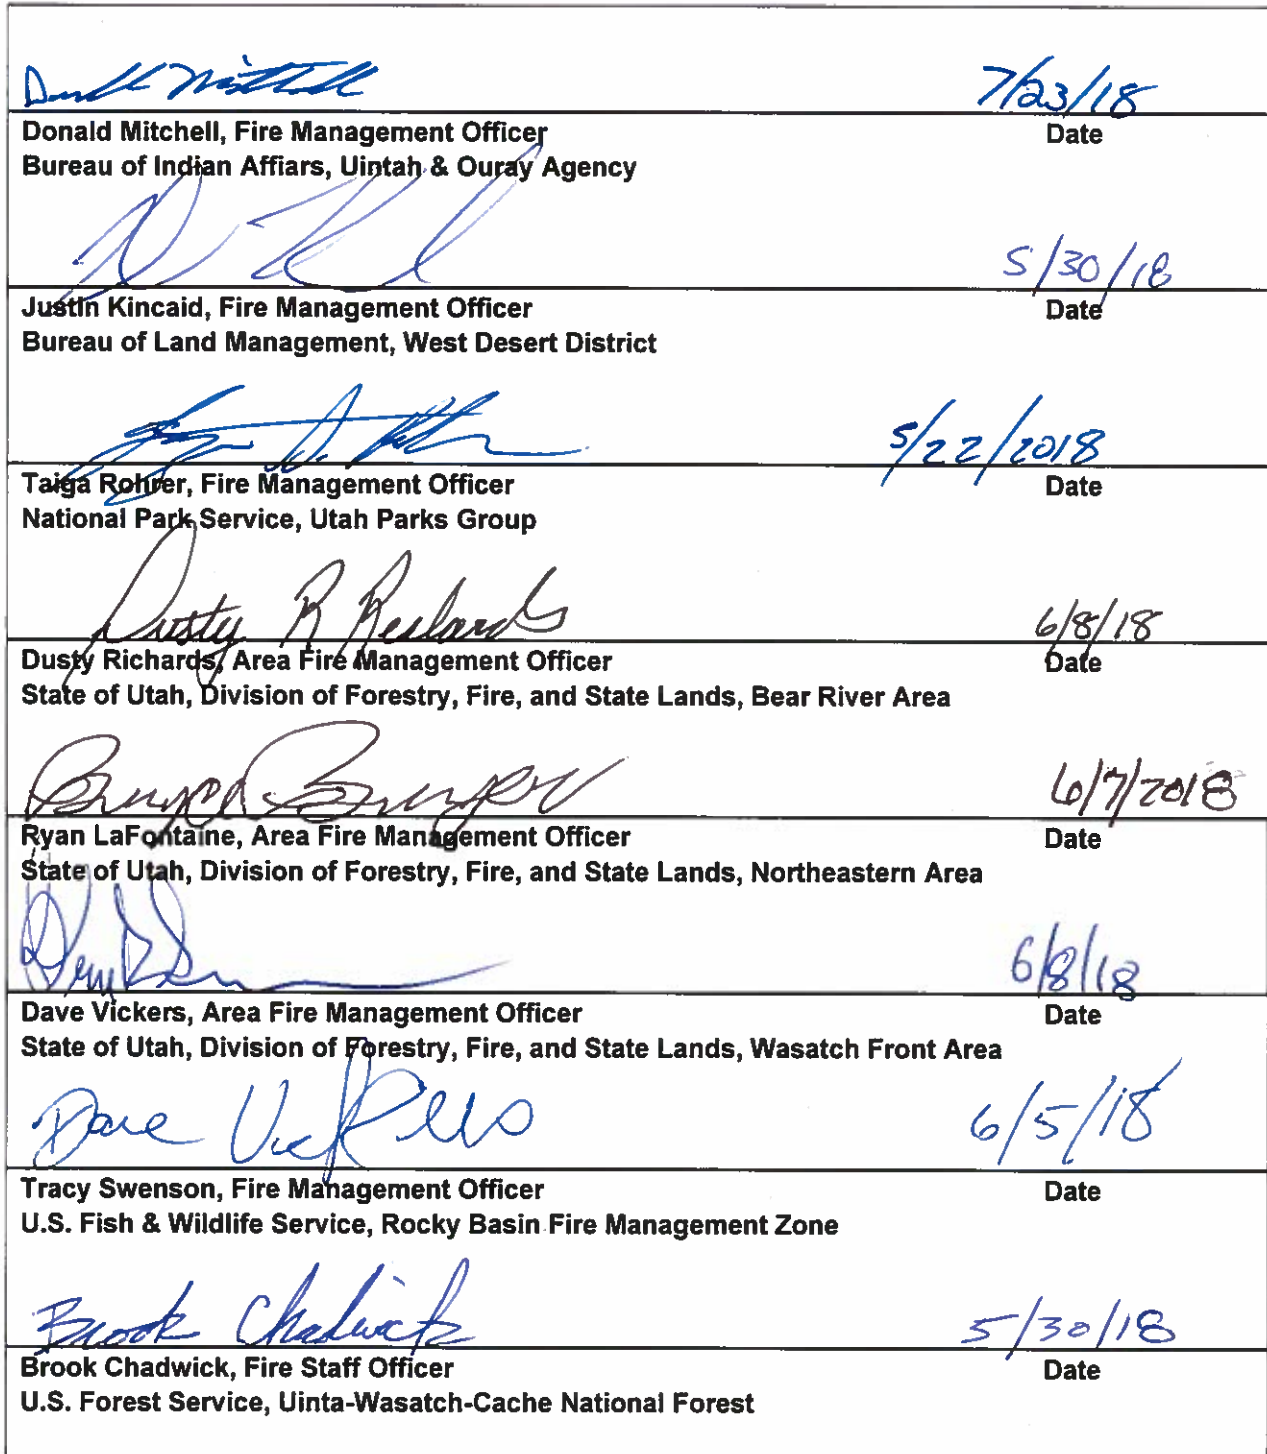 7/23/18
Donald Mitchell, Fire Management Officer Date
Bureau of Indian Affiars, Uintah & Ouray Agency
5/30/18
Justin Kincaid, Fire Management Officer Date
Bureau of Land Management, West Desert District
5/22/2018
Taiga Rohrer, Fire Management Officer Date
National Park Service, Utah Parks Group
Dusty R Richards 6/8/18
Dusty Richards, Area Fire Management Officer Date
State of Utah, Division of Forestry, Fire, and State Lands, Bear River Area
6/7/2018
Ryan LaFontaine, Area Fire Management Officer Date
State of Utah, Division of Forestry, Fire, and State Lands, Northeastern Area
6/8/18
Dave Vickers, Area Fire Management Officer Date
State of Utah, Division of Forestry, Fire, and State Lands, Wasatch Front Area
Dave Vickers 6/5/18
Tracy Swenson, Fire Management Officer Date
U.S. Fish & Wildlife Service, Rocky Basin Fire Management Zone
Brook Chadwick 5/30/18
Brook Chadwick, Fire Staff Officer Date
U.S. Forest Service, Uinta-Wasatch-Cache National Forest